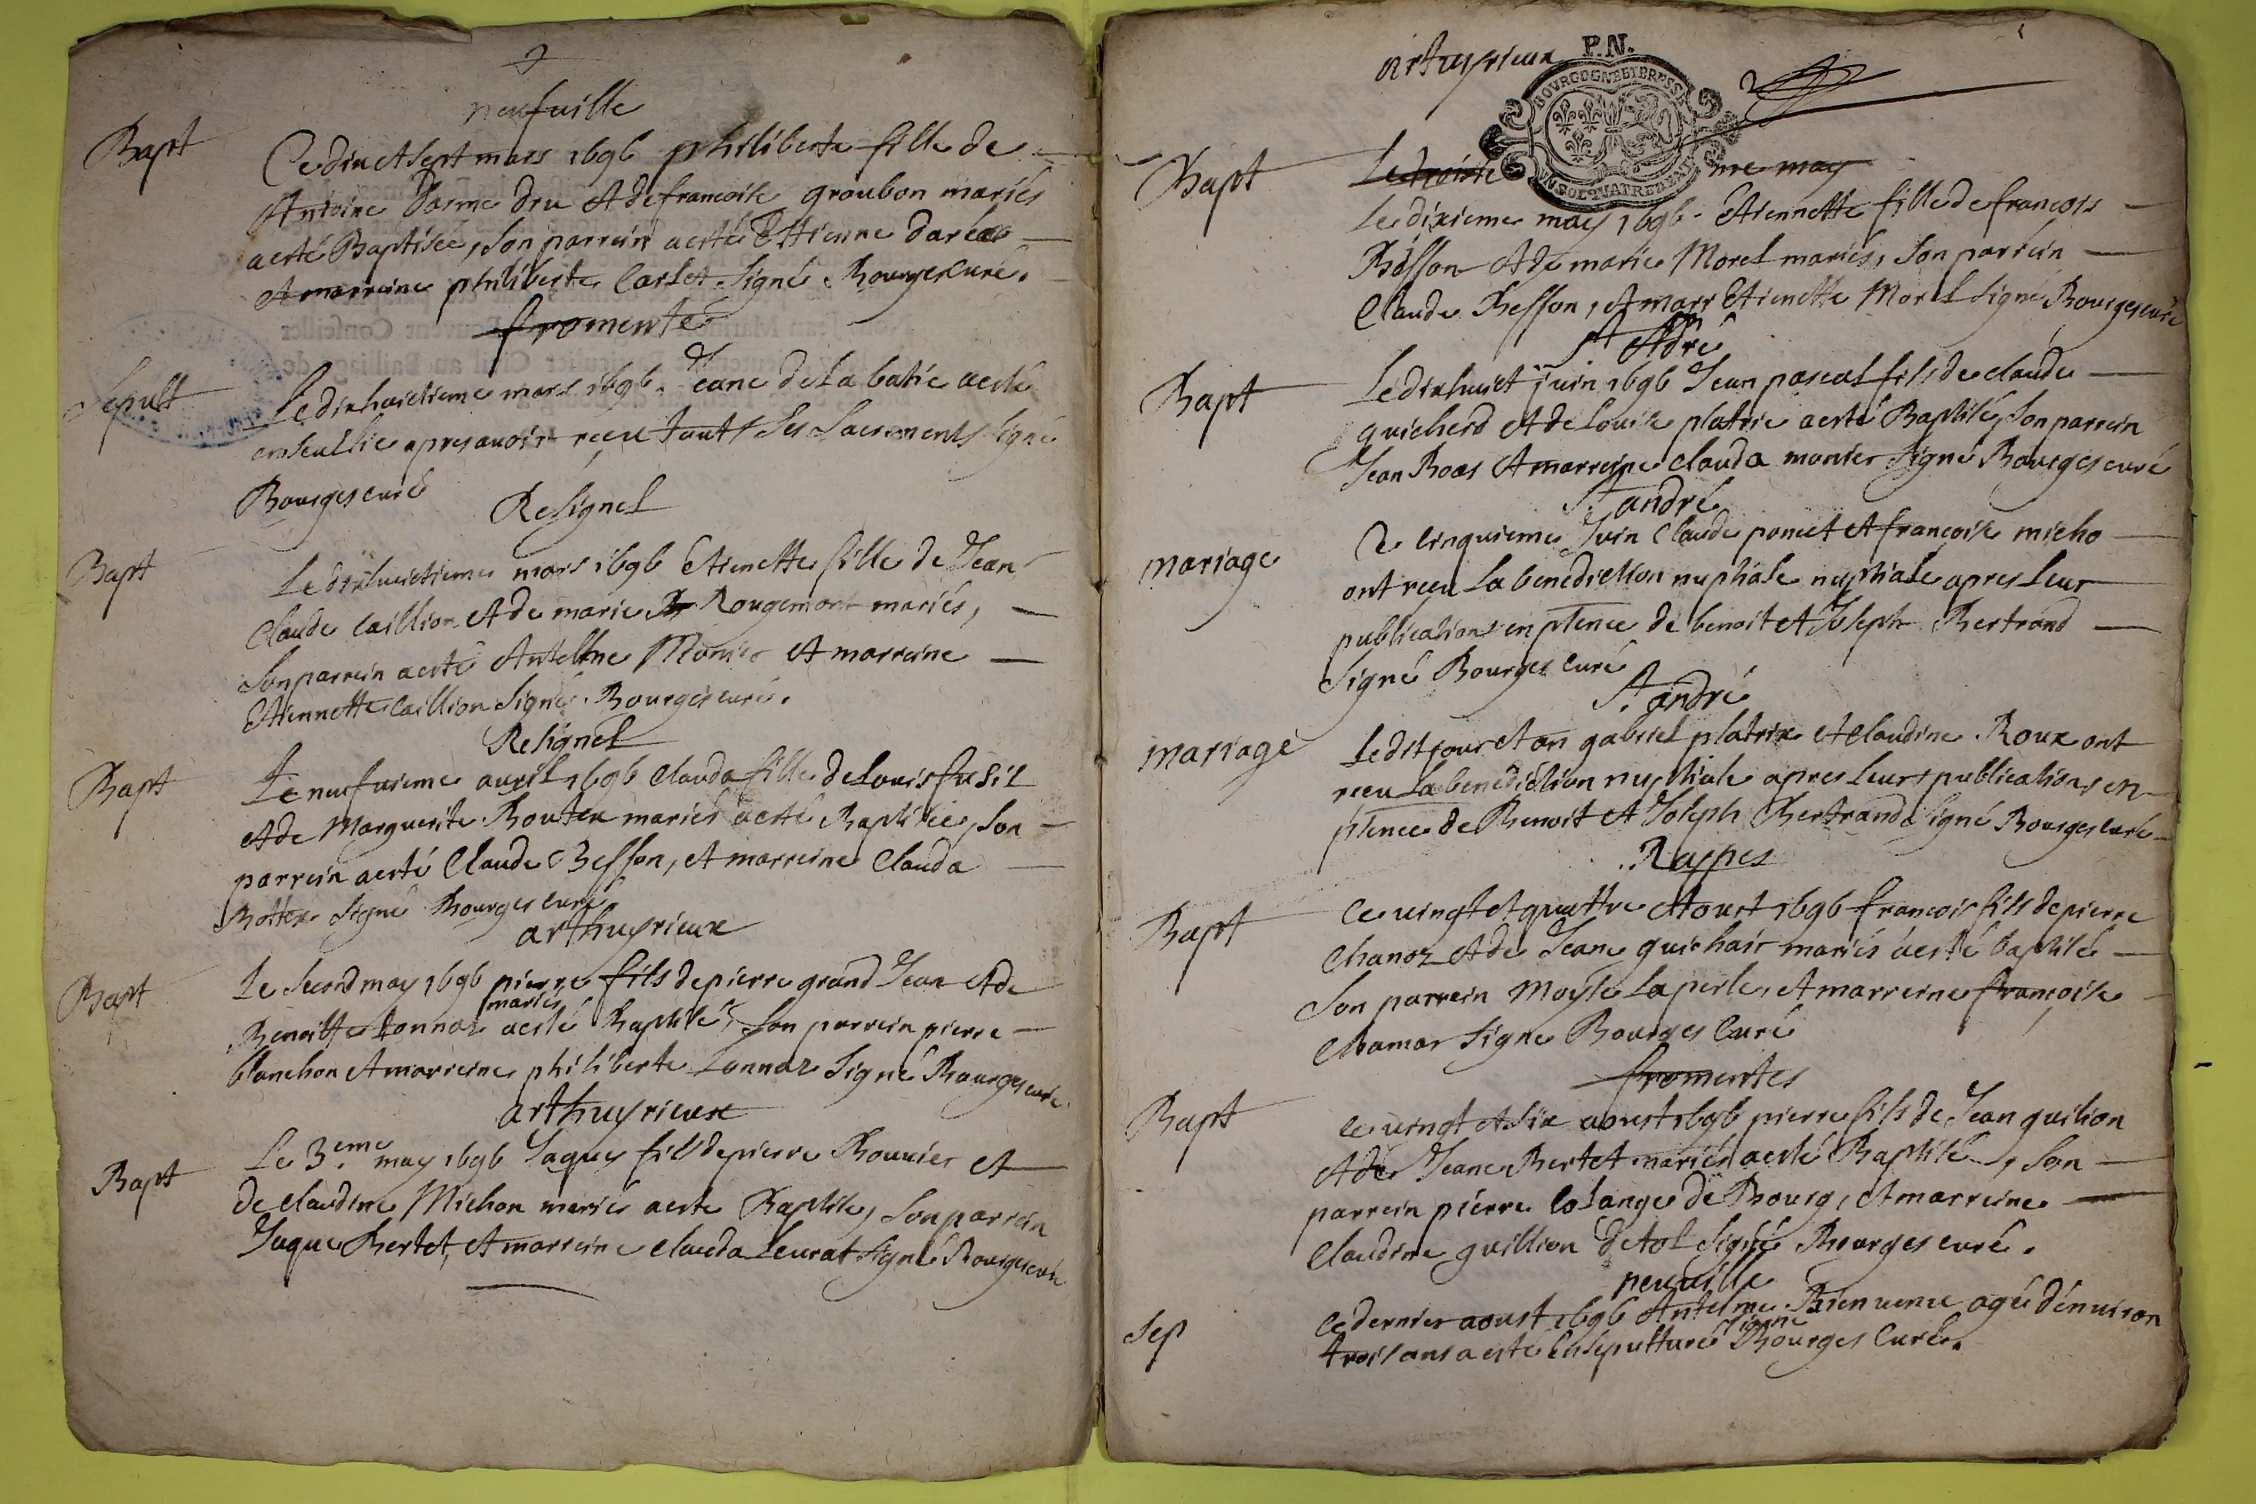 2
neufuille
Bapt
Ce dix et sept mars 1696 philiberte fille de
Antoine Dosme dru et de francoise groubon mariés
a esté Baptisée, son parrein a esté Ettienne
et marreine philiberte Carlet signé Bourges curé.
fromente
Sepult
Le dixhuictieme mars 1696. Jeane de la batie a esté
ensevelie apres avoir receu touts ses sacrements signé
Bourges curé
Resignel
Bapt
Le dixhuictieme mars 1696 Etienette fille de Jean
Claude Caillion et de marie Rougemont mariés,
son parrein a esté Antelme Monier et marreine
Etiennette Caillion signé. Bourges curé.
Resignel
Bapt
Le neufuieme auril 1696 Clauda fille de Louis fusil
et de Marguerite Boutex mariés a esté Baptisée, son
parrein a esté Claude Besson, et marreine Clauda
signé Bourges curé.
arthuyrieux
Bapt
Le second may 1696 pierre fils de pierre grand Jean et de
mariés
Benoitte Lonnaz a esté Baptisé, son parrein pierre
blanchon et marreine philiberte Lonnaz signé Bourges curé.
arthuyrieux
Bapt
Le 3.eme may 1696 Jaques fils de pierre Bouuier et
de claudine Michon mariés a esté Baptise, son parrein
Jaque Bertet, et marreine clauda Leurat signé Bourges curé
arthuyrieux
P.N.
BOURGOGNE ET BRESSE
Bapt
Le troisie me may
Le dixieme may 1696. Etiennette fille de francois
Besson et de marie Morel mariés, son parrein
Claude Besson, et marr Etienette Morel signé Bourges curé
St Adré
Bapt
Le dixhuict juin 1696 Jean pascal fils de claude
guicherd et de Louise platrie a esté Baptisé, son parrein
Jean Boas et marreine clauda monier signé Bourges curé
St. andré
mariage
Ce cinquieme Juin Claude poncet et francoise micho
ont receu la benediction nuphiale nuptiale apres leur
publications en pnce de benoit et Joseph Bertrand
signé Bourges curé
St. andré
mariage
Ledit jour et an gabriel platrix et claudine Roux ont
receu la benediction nuptiale apres leurs publications en
pnce de Benoit et Joseph Bertrand signé Bourges curé
Rasppes
Bapt
Ce uingt et quattre Aoust 1696 francois fils de pierre
Chanoz et de Jeane mariés a esté baptisé
Son parrein Moyse Laperle, et marreine françoise
Chamar signe Bourges curé
fromentes
Bapt
Ce uingt et six aoust 1696 pierre fils de Jean guilion
et de Jeane Bertet mariés a esté Baptisé, son
parrein pierre de Bourg, et marreine
Claudine guillion de tol signé Bourges curé.
neuuille
Sep
Ce dernier aoust 1696 Antelme Bienvenu agé d'enuiron
signé
trois ans a esté Ensepulturé Bourges Curé.